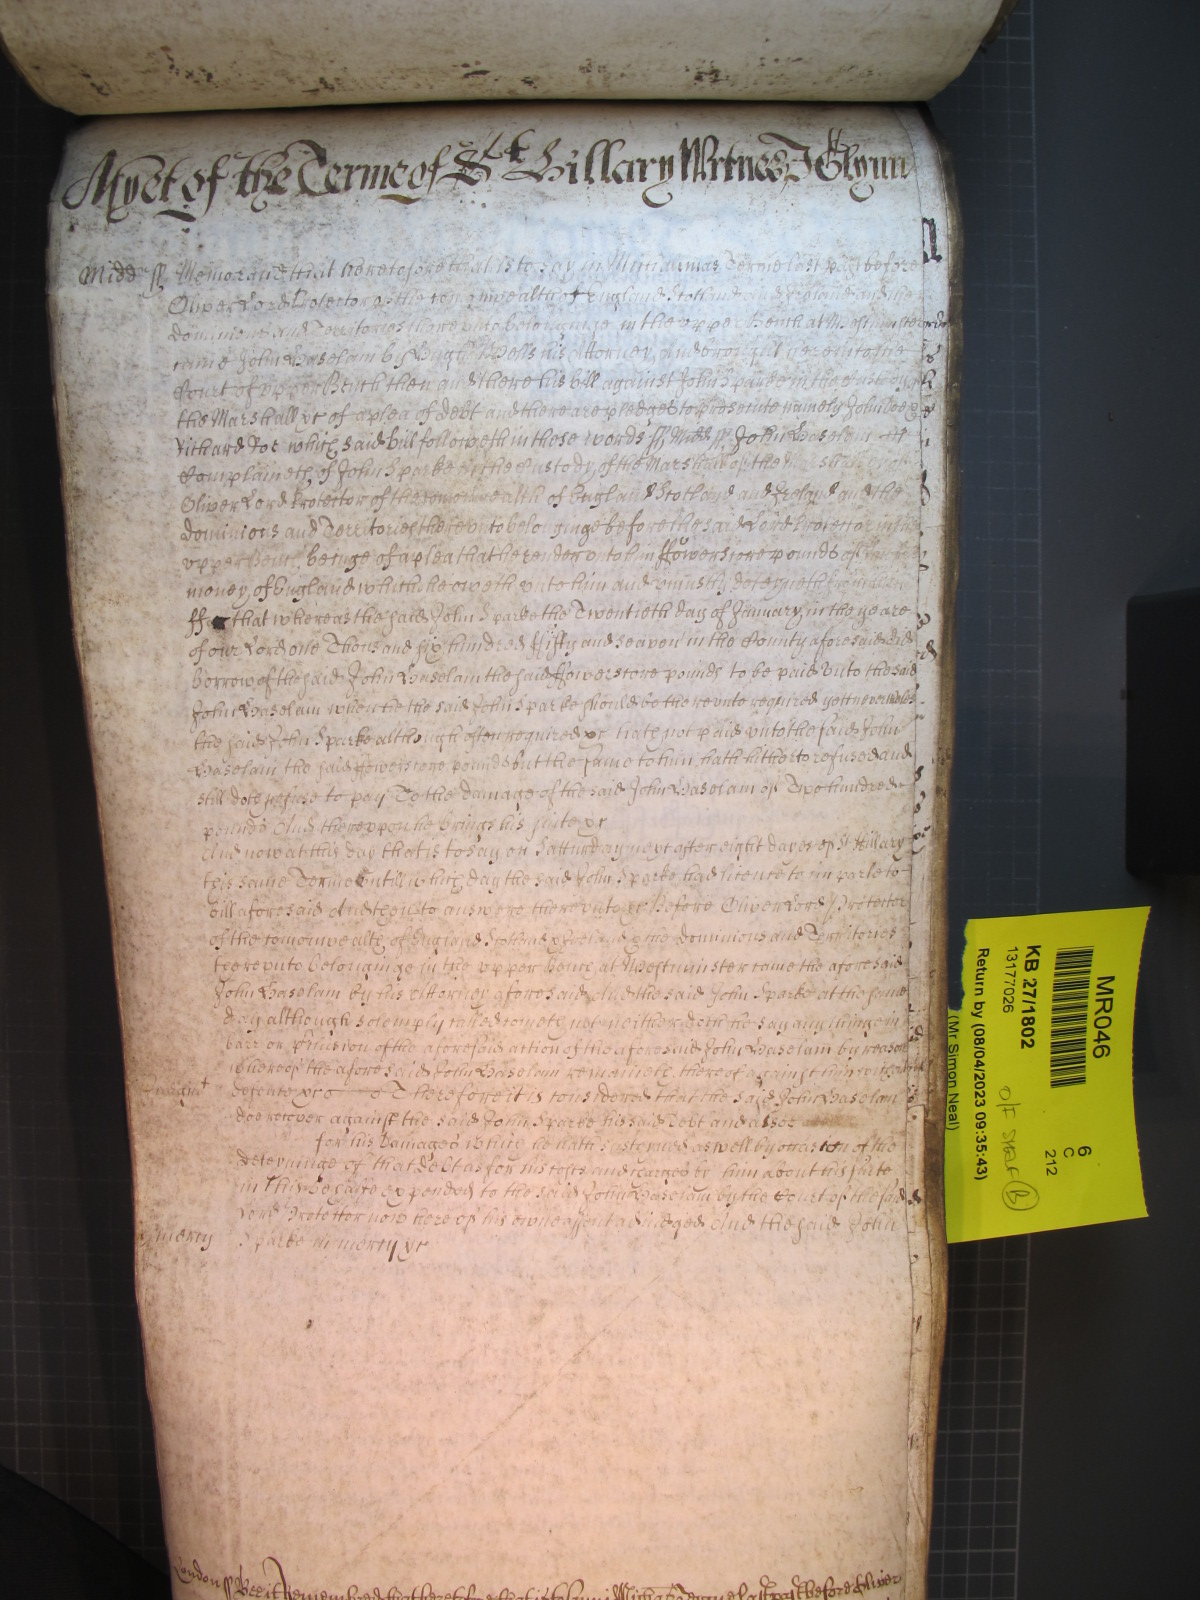 As yet of the Terme of St Hillary Witnes J Glynn
Midd ss Memorand that heretofore that is to say in Michaelmas Terme last past before
Oliver Lord Protector of the comonwealth of England Scotland and Ireland and the
dominions and Territories thereunto belonginge in the upper Bench at Westminster
came John Haselam by Hugh Wells his Attorney, And brought here into the
Court of upper Bench then and there his bill against John Sparke in the custody of
the Marshall &c of a plea of debt and there are pledges to prosecute namely John Doe &
Richard Roe which said bill followeth in these words ss Midd ss John Haselam
Complaineth of John Sparke in the custody of the Marshall of the
Oliver Lord Protector of the comonwealth of England Scotland and Ireland and the
dominions and Territories thereunto belonginge before the said Lord Protector in the
upper Bench beinge of a plea that he render unto him ffowerscore pounds of
money of England which he oweth unto him and uniustly deteyneth
ffor that whereas the said John Sparke the Twentieth day of January in the yeare
of our Lord one Thousand six hundred ffifty and seaven in the County aforesaid did
borrow of the said John Haselam the said ffowerscore pounds to be paid unto the said
John Haselam when he the said John Sparke should be thereunto required yett neverthelesse
the said John Sparke although often required &c hath not paid unto the said John
Haselam the said ffowerscore pounds but the same to him hath hitherto refused and
still doth refuse to pay To the damage of the said John Haselam of Two hundred
pounds And thereuppon he brings his suite &c
And now at this day that is to say on Satturday next after eight dayes of St Hillary
this same Terme untill which day the said John Sparke had licence to imparle to
bill aforesaid And then to answere thereunto &c Before Oliver Lord Protector
of the comonwealth of England Scotland & Ireland & the dominions and Territories
thereunto belonginge in the upper bench at Westminster came the aforesaid
John Haselam by his Attorney aforesaid And the said John Sparke at the same
day although solempnly called cometh not neither doth he say any thinge in
barr or preclusion of the aforesaid action of the aforesaid John Haselam by reason
whereof the aforesaid John Haselam remaineth thereof against him
defence &c Therefore it is considered that the said John Haselam
doe recover against the said John Sparke his said Debt and alsoe
for his Damages which he hath susteined aswell by occasion of the
deteyninge of that debt as for his costs and charges by him about his suite
in this behalfe expended to the said John Haselam by the Court of the said
Lord Protector now here of his owne assent adiudged And the said John
mercy Sparke in mercy &c
London ss Bee it Remembred that heretofore that is to say in Michas Terme last past before Oliver
MR046
KB 27/1802
13177026
Return by (08/04/2023 09:35:43)
(Mr Simon Neal)
6
C
212
O/F SHELF B